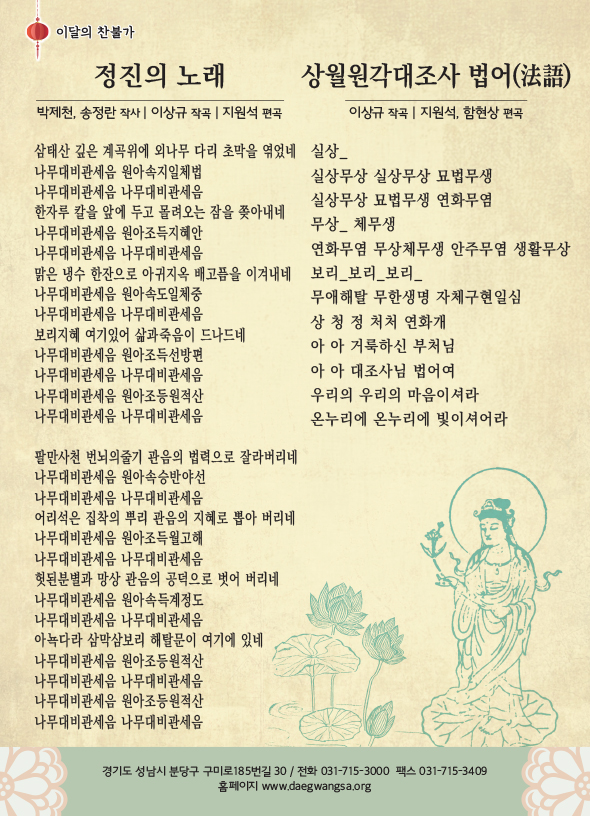 이달의 찬불가
정진의 노래
박제천, 송정란 작사 | 이상규 작곡 | 지원석 편곡
삼태산 깊은 계곡위에 외나무 다리 초막을 엮었네
나무대비관세음 원아속지일체법
나무대비관세음 나무대비관세음
한자루 칼을 앞에 두고 몰려오는 잠을 쫓아내네
나무대비관세음 원아조득지혜안
나무대비관세음 나무대비관세음
맑은 냉수 한잔으로 아귀지옥 배고픔을 이겨내네
나무대비관세음 원아속도일체중
나무대비관세음 나무대비관세음
보리지혜 여기있어 삶과죽음이 드나드네
나무대비관세음 원아조득선방편
나무대비관세음 나무대비관세음
나무대비관세음 원아조등원적산
나무대비관세음 나무대비관세음
팔만사천 번뇌의줄기 관음의 법력으로 잘라버리네
나무대비관세음 원아속승반야선
나무대비관세음 나무대비관세음
어리석은 집착의 뿌리 관음의 지혜로 뽑아 버리네
나무대비관세음 원아조득월고해
나무대비관세음 나무대비관세음
헛된분별과 망상 관음의 공덕으로 벗어 버리네
나무대비관세음 원아속득계정도
나무대비관세음 나무대비관세음
아뇩다라 삼막삼보리 해탈문이 여기에 있네
나무대비관세음 원아조등원적산
나무대비관세음 나무대비관세음
나무대비관세음 원아조등원적산
나무대비관세음 나무대비관세음
상월원각대조사 법어(法語)
이상규 작곡 | 지원석, 함현상 편곡
실상_
실상무상 실상무상 묘법무생
실상무상 묘법무생 연화무염
무상_ 체무생
연화무염 무상체무생 안주무염 생활무상
보리_보리_보리_
무애해탈 무한생명 자체구현일심
상 청 정 처처 연화개
아 아 거룩하신 부처님
아 아 대조사님 법어여
우리의 우리의 마음이셔라
온누리에 온누리에 빛이셔어라
경기도 성남시 분당구 구미로185번길 30 / 전화 031-715-3000 팩스 031-715-3409
홈페이지 www.daegwangsa.org